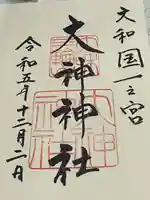 大和国一之宮
大神神社
令和五年十二月二日